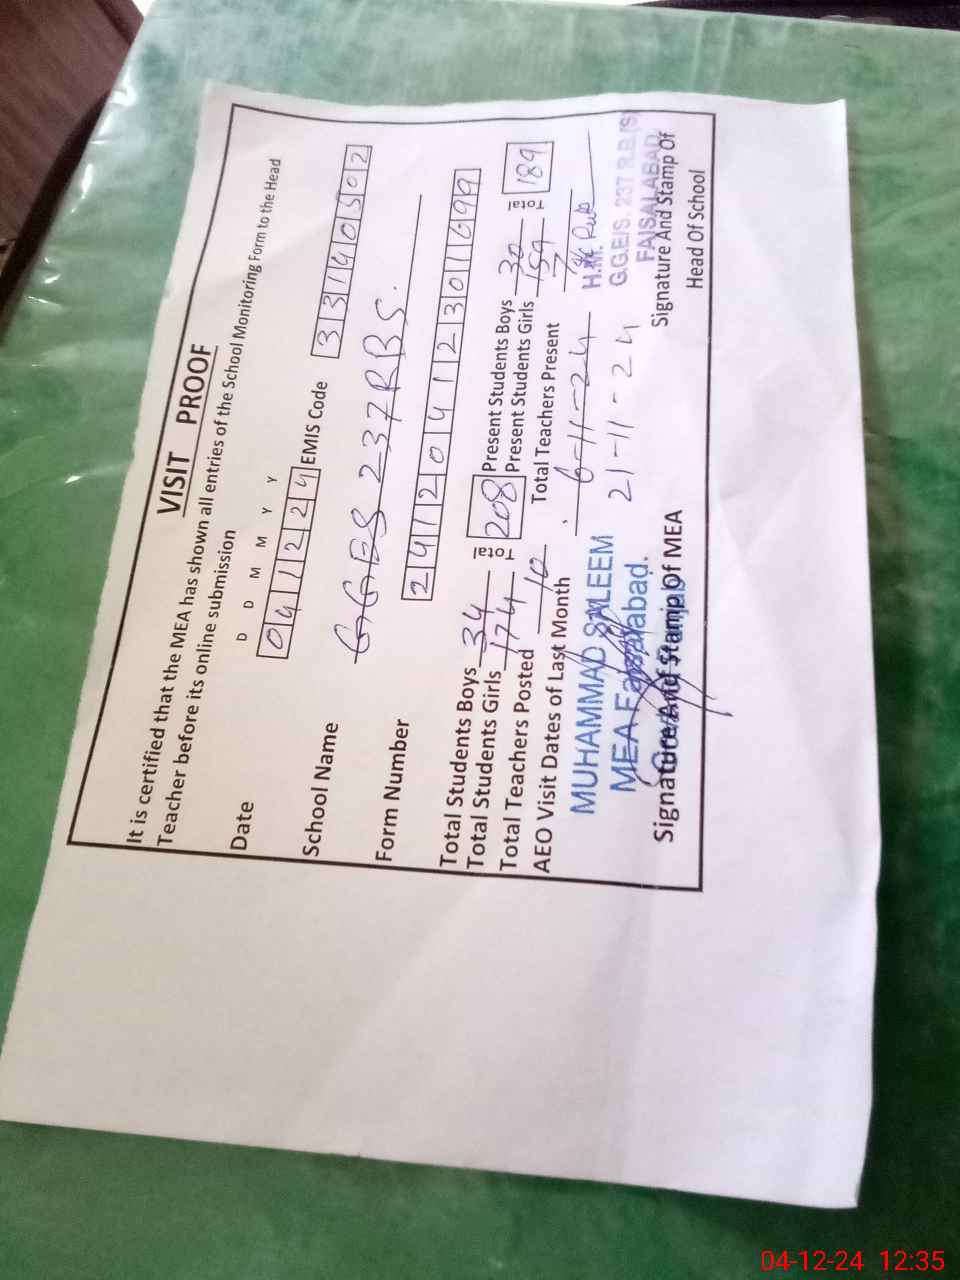 VISIT PROOF
It is certified that the MEA has shown all entries of the School Monitoring Form to the Head
Teacher before its online submission
D D M M Y Y
Date 041224 EMIS Code 33140502
School Name GGES 237 RBS.
Form Number 24120412301699
Total Students Boys 34 Total 208 Present Students Boys 30 Total 189
Total Students Girls 174 Present Students Girls 159
Total Teachers Posted 10 Total Teachers Present 7
AEO Visit Dates of Last Month 6-11-24
21-11-24
MUHAMMAD SALEEM
MEA Faisalabad.
Signature And Stamp Of MEA
H.M.
G.G.E/S. 237 R.B (S)
FAISALABAD
Signature And Stamp Of
Head Of School
04-12-24 12:35